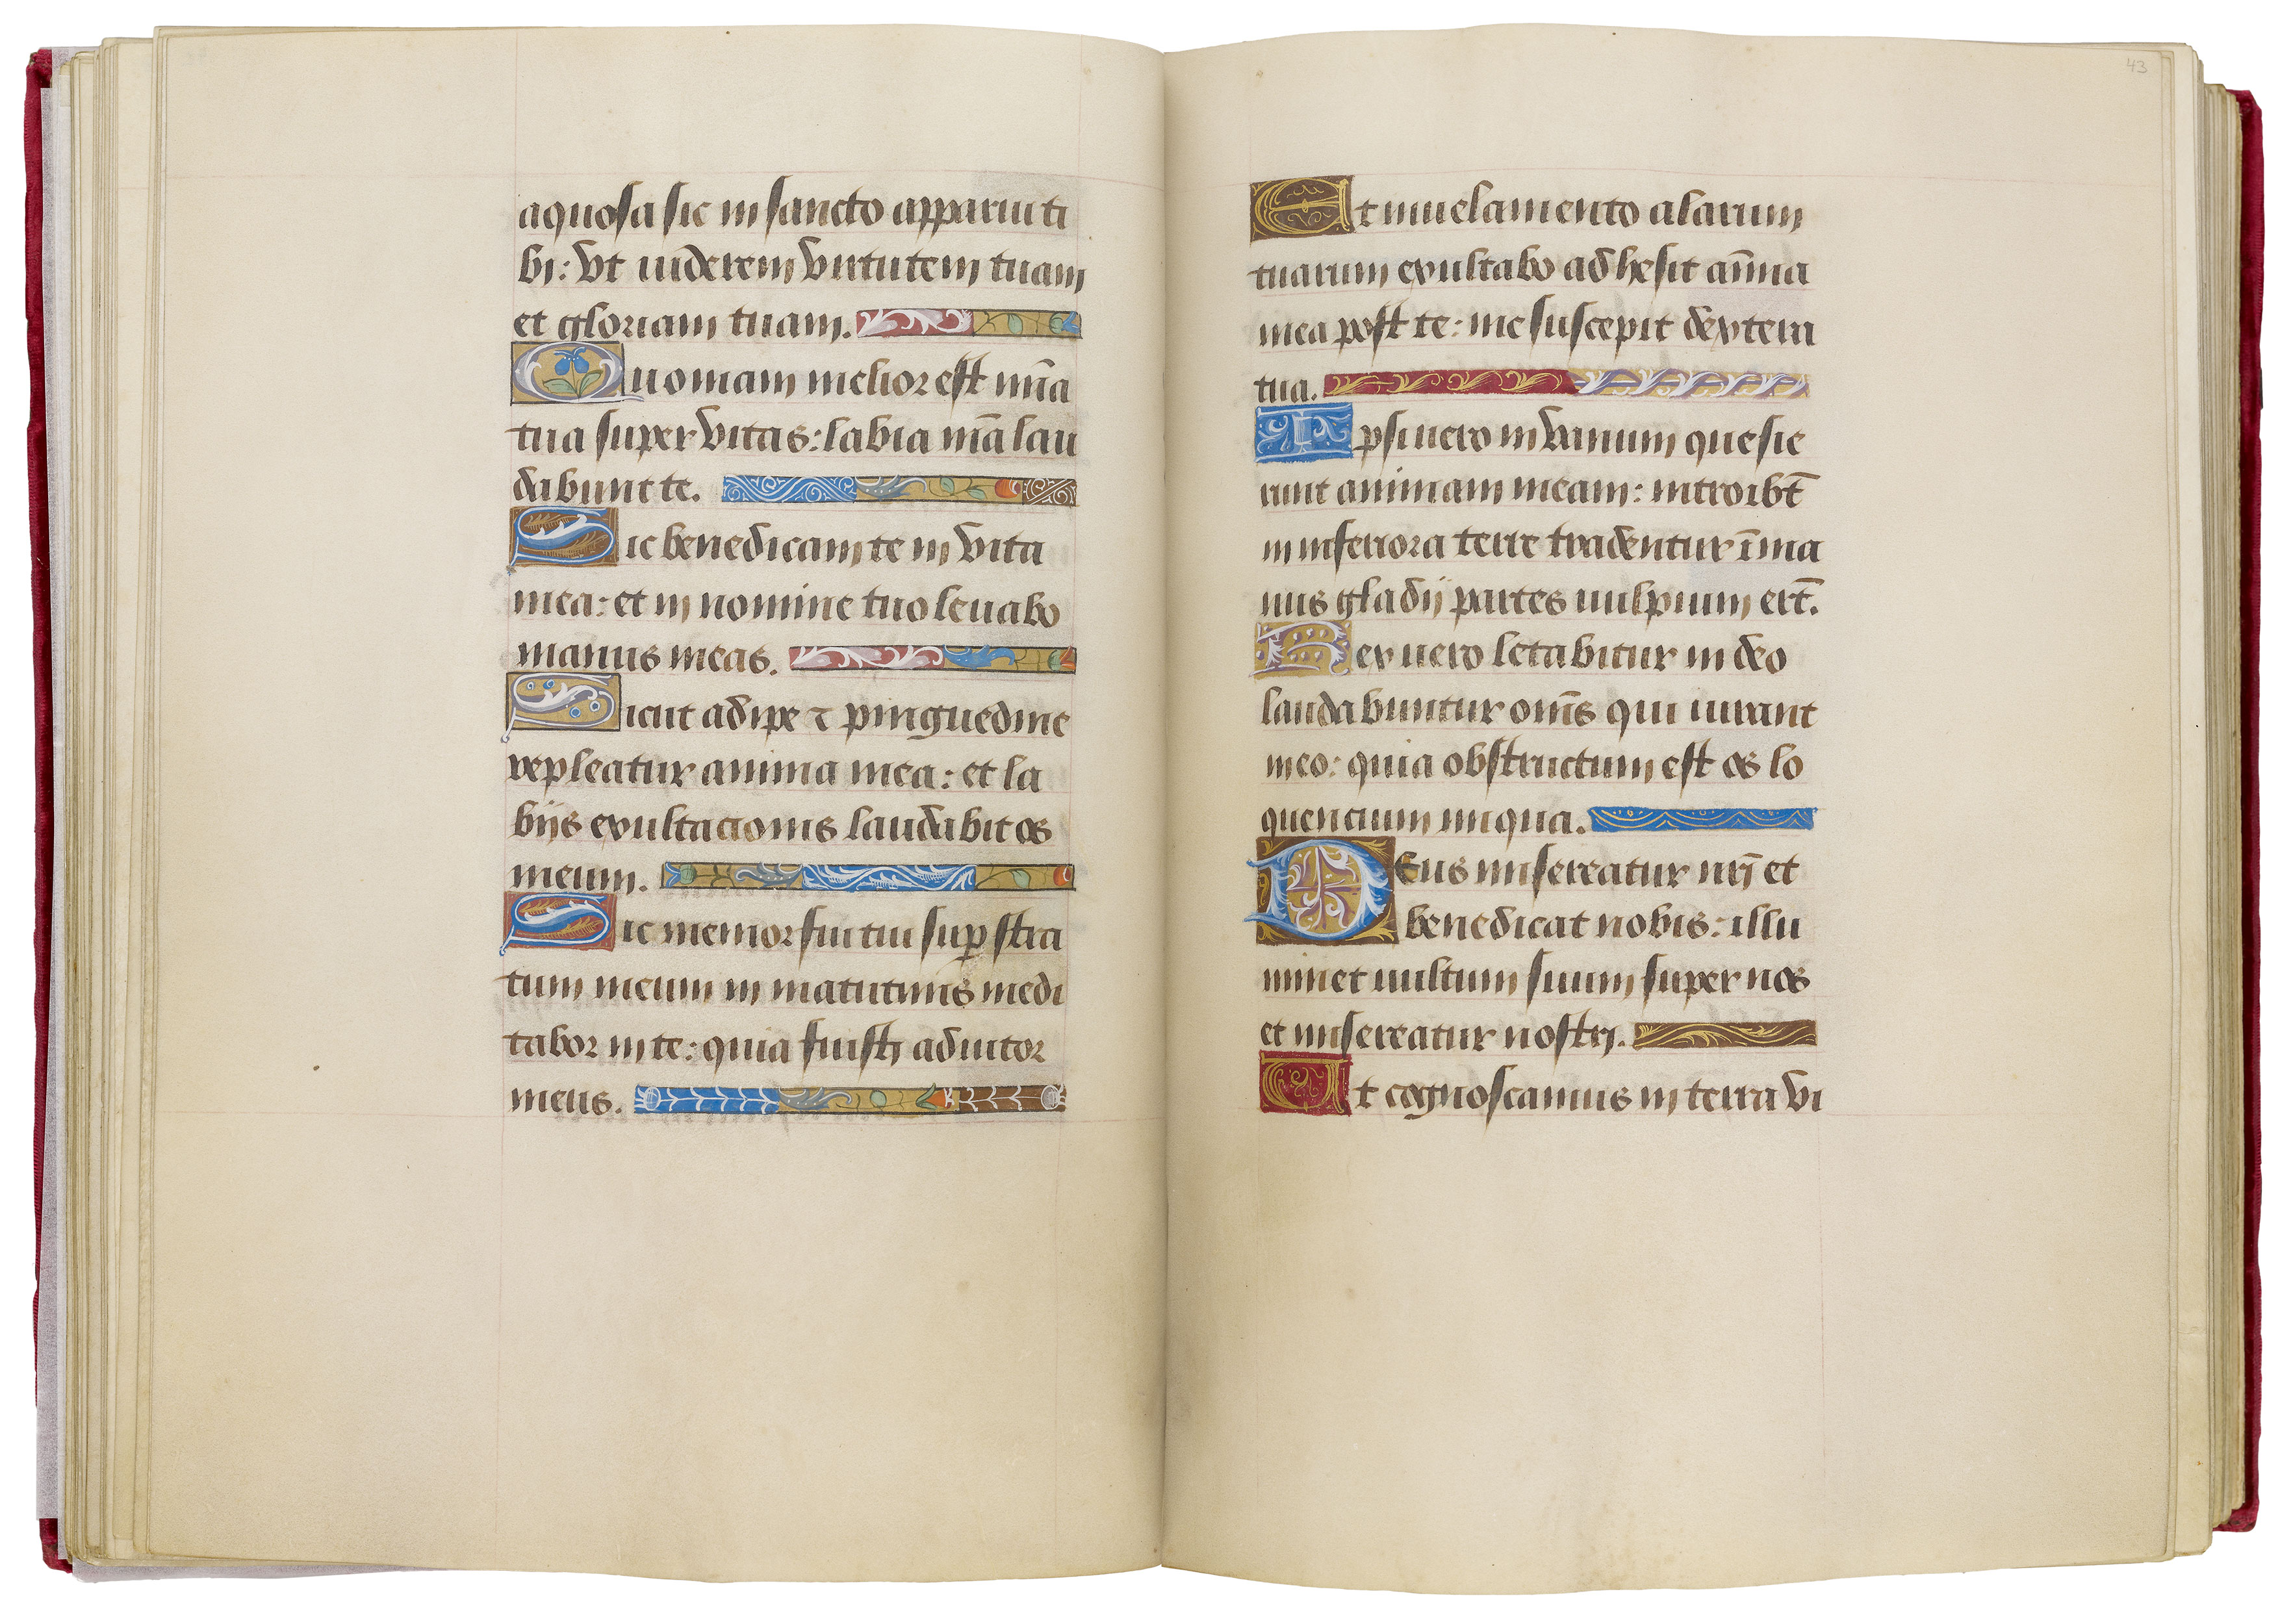 aquosa sic in sancto apparui ti
bi: vt uiderem virtutem tuam
et gloriam tuam.
Quoniam melior est mīa
tua super vitas: labia mēa lau
dabunt te.
Sic benedicam te in vita
mea: et in nomine tuo leuabo
manus meas.
Sicut adipe ⁊ pinguedine
repleatur anima mea: et la
bijs exultacionis laudabit os
meum.
Sic memor fui tui suꝑ stra
tum meum in matutinis medi
tabor in te: quia fuisti adiutor
meus.
43
Et in uelamento alarum
tuarum exultabo adhesit aīma
mea post te: me suscepit dextera
tua.
Ipsi uero in vanum quesie
runt animam meam: introibūt
in inferiora terre tradentur ī ma
nus gladij partes uulpium erūt.
Rex uero letabitur in deo
laudabuntur om̄s qui iurant
in eo: quia obstructum est os lo
quencium iniqua.
DEus misereatur nr̄i et
benedicat nobis: illu
minet uultum suum super nos
et misereatur nostri.
Ut cognoscamus in terra vi